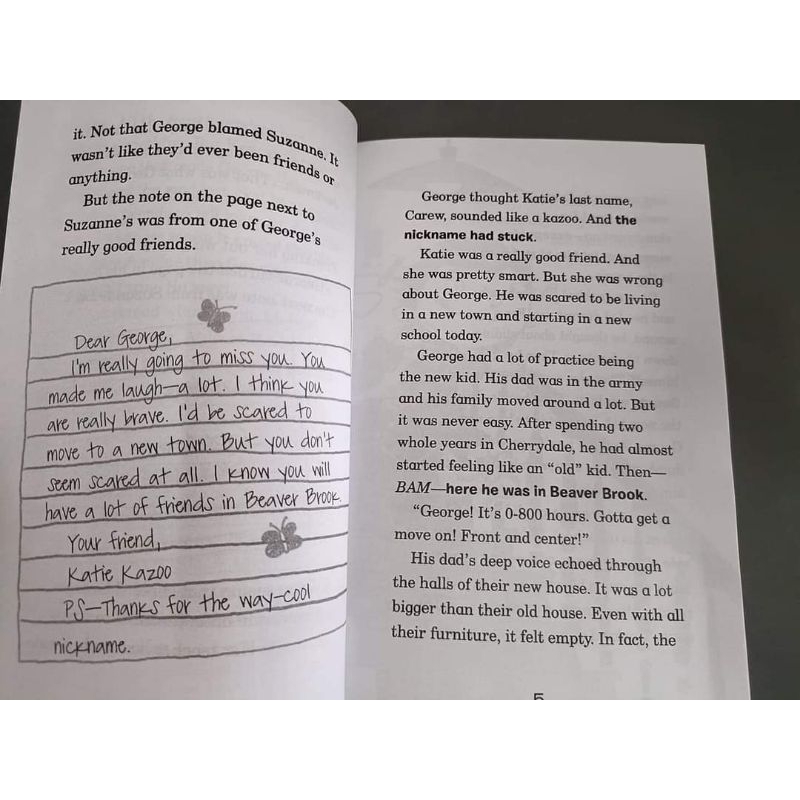 it. Not that George blamed Suzanne. It
wasn't like they'd ever been friends or
anything.
But the note on the page next to
Suzanne's was from one of George's
really good friends.
Dear George,
I'm really going to miss you. You
made me laugh—a lot. I think you
are really brave. I'd be scared to
move to a new town. But you don't
seem scared at all. I know you will
have a lot of friends in Beaver Brook.
Your friend,
Katie Kazoo
PS—Thanks for the way-cool
nickname.
George thought Katie's last name,
Carew, sounded like a kazoo. And the
nickname had stuck.
Katie was a really good friend. And
she was pretty smart. But she was wrong
about George. He was scared to be living
in a new town and starting in a new
school today.
George had a lot of practice being
the new kid. His dad was in the army
and his family moved around a lot. But
it was never easy. After spending two
whole years in Cherrydale, he had almost
started feeling like an “old” kid. Then—
BAM—here he was in Beaver Brook.
“George! It's 0-800 hours. Gotta get a
move on! Front and center!”
His dad's deep voice echoed through
the halls of their new house. It was a lot
bigger than their old house. Even with all
their furniture, it felt empty. In fact, the
5